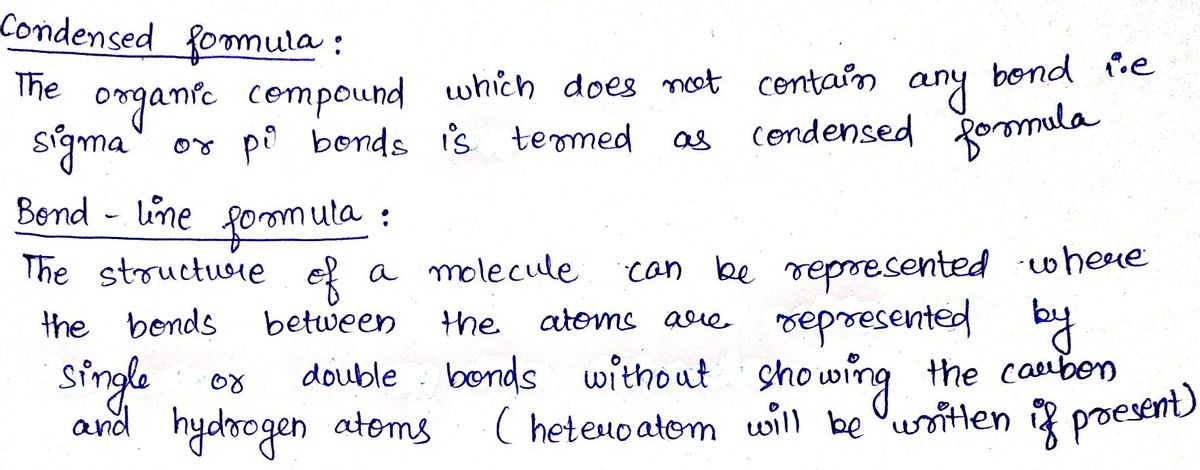 Condensed formula :
The organic compound which does not contain any bond i.e
sigma or pi bonds is termed as condensed formula
Bond - line formula :
The structure of a molecule can be represented where
the bonds between the atoms are represented by
single or double bonds without showing the carbon
and hydrogen atoms ( heteroatom will be written if present)